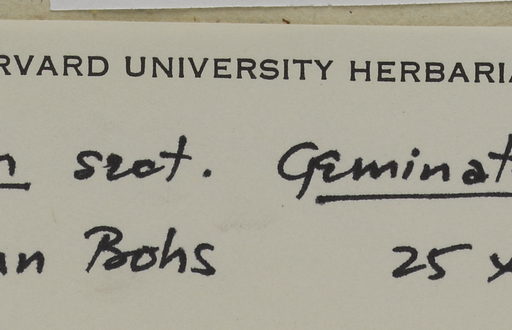 RVARD UNIVERSITY HERBARIA
n sect. Geminat
an Bohs 25 x